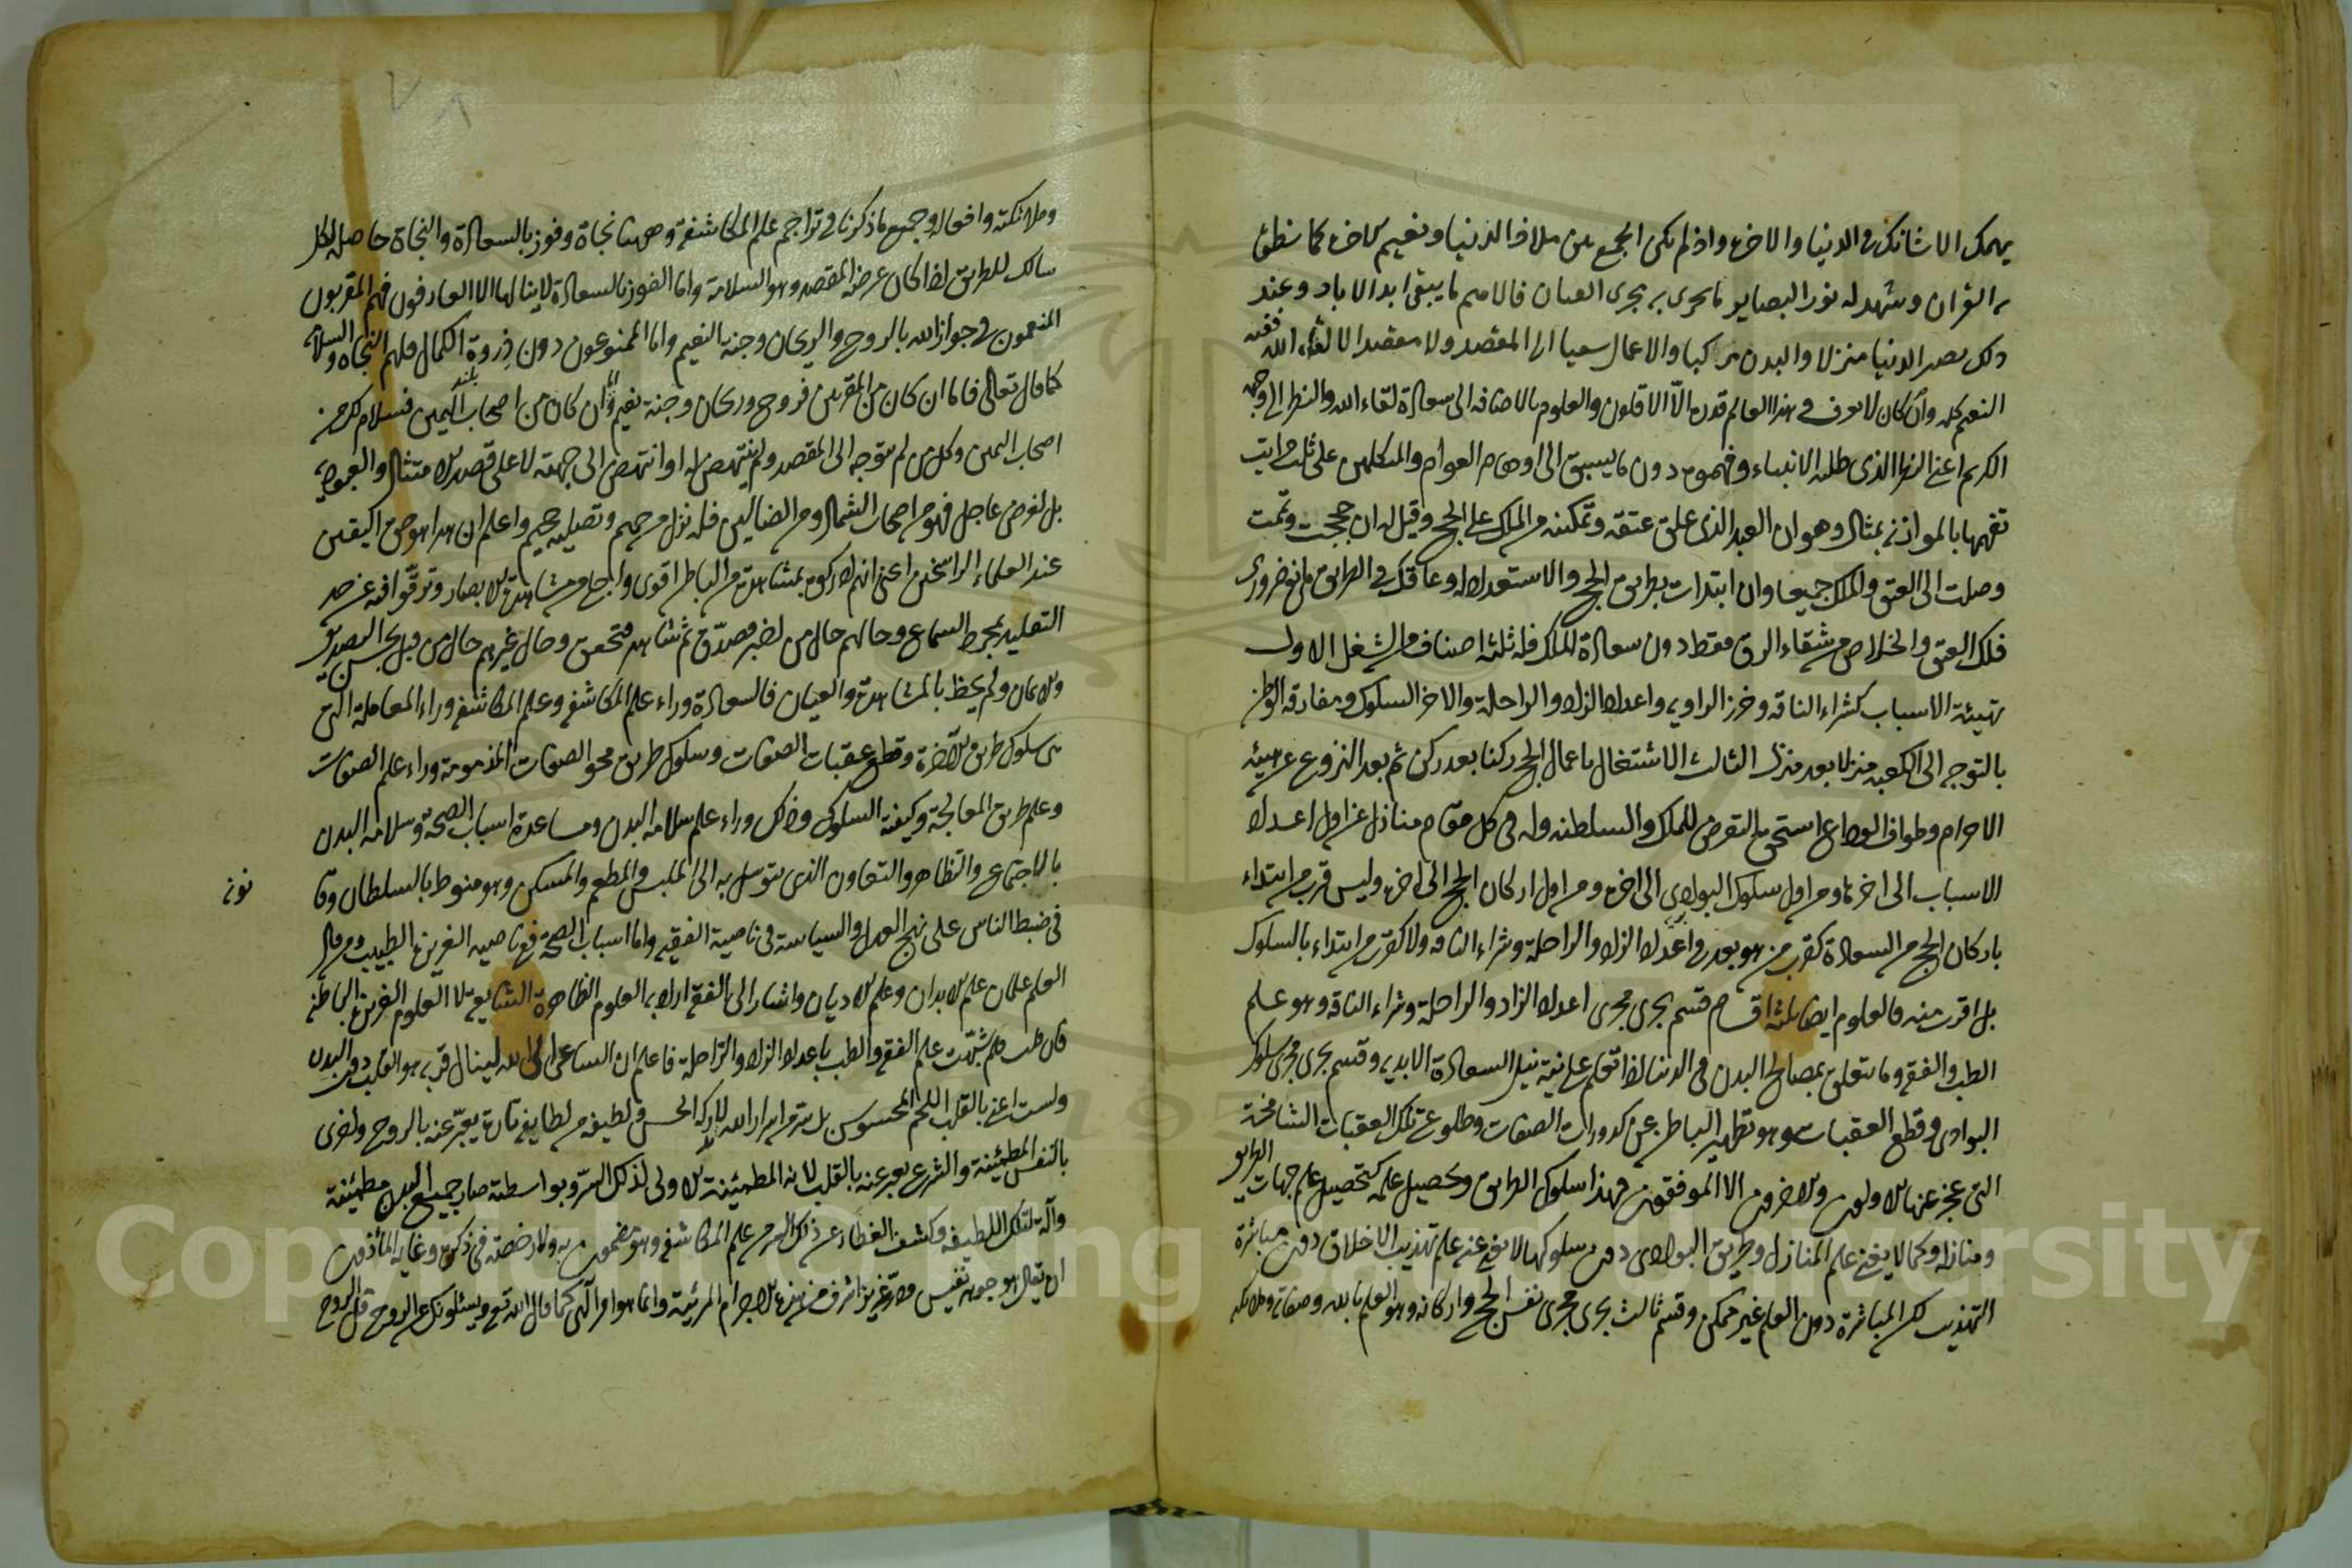 يهمك الا شانك في الدنيا والاخرة واذ لم يمكن الجمع بين ملاذ الدنيا ونعيم الاخرة كما نطق
به القران وشهد له نور البصاير ما يجرى به مجرى العيان فالاهم ما يبقى ابد الاباد وعند
ذلك يصير الدنيا منزلا والبدن مركبا والاعمال سعيا الى المقصد ولا مقصد الا لقاء الله ففيه
النعيم كله وان كان لا يعرف في هذا العالم قدره الا الاقلون والعلوم بالاضافة الى سعادة لقاء الله والنظر الى وجهه
الكريم اعنى النظر الذى طلبه الانبياء وفهموه دون ما يسبق الى اوهام العوام والمتكلمين على ثلث مراتب
تفهمها بالموازنة بمثال وهو ان العبد الذى علق عتقه وتمكينه من الملك على الحج وقيل له ان حججت وتممت
وصلت الى العتق والملك جميعا وان ابتدات بطريق الحج والاستعداد له وعاقك في الطريق مانع ضرورى
فلك العتق والخلاص من شقاء الرق فقط دون سعادة الملك فله ثلثة اصناف من الشغل الاول
تهيئة الاسباب كشراء الناقة وخرز الراوية واعداد الزاد والراحلة والاخر السلوك ومفارقة الوطن
بالتوجه الى الكعبة منزلا بعد منزل الثالث الاشتغال باعمال الحج ركنا بعد ركن ثم بعد النزوع عن هيئة
الاحرام وطواف الوداع استحق التعرض للملك والسلطنة وله في كل مقام منازل من اول اعداد
الاسباب الى اخرها ومن اول سلوك البوادى الى اخره ومن اول اركان الحج الى اخره وليس قرب من ابتداء
باركان الحج من السعادة كقرب من هو بعد في اعداد الزاد والراحلة وشراء الناقة ولا كقرب من ابتداء بالسلوك
بل اقرب منه فالعلوم ايضا ثلثة اقسام قسم يجرى مجرى اعداد الزاد والراحلة وشراء الناقة وهو علم
الطب والفقه وما يتعلق بمصالح البدن في الدنيا اذا تعلم على نية نيل السعادة الابدية وقسم يجرى مجرى سلوك
البوادى وقطع العقبات وهو تطهير الباطن عن كدورات الصفات وطلوع تلك العقبات الشامخة
التى عجز عنها الاولون والاخرون الا الموفقون فهذا سلوك الطريق وتحصيل علمه كتحصيل علم جهات الطريق
ومنازله وكما لا يغنى علم المنازل وطريق البوادى دون سلوكها لا يغنى علم تهذيب الاخلاق دون مباشرة
التهذيب لكن المباشرة دون العلم غير ممكن وقسم ثالث يجرى مجرى نفس الحج واركانه وهو العلم بالله وصفاته وملائكته
وملائكته وافعاله وجميع ما ذكرنا في تراجم علم المكاشفة وههنا نجاة وفوز بالسعادة والنجاة حاصلة لكل
سالك للطريق اذا كان غرضه المقصد وهو السلامة واما الفوز بالسعادة لا ينالها الا العارفون فهم المقربون
المنعمون في جوار الله بالروح والريحان وجنة النعيم واما الممنوعون دون ذروة الكمال فلهم النجاة والسلامة
كما قال تعالى فاما ان كان من المقربين فروح وريحان وجنة نعيم واما ان كان من اصحاب اليمين فسلام لك من
اصحاب اليمين وكل من لم يتوجه الى المقصد ولم ينتهض له او انتهض الى جهته لا على قصد الامتثال والعبودية
بل لغرض عاجل فهو من اصحاب الشمال ومن الضالين فله نزل من حميم وتصلية جحيم واعلم ان هذا هو حق اليقين
عند العلماء الراسخين اعنى انهم ادركوه بمشاهدة من الباطن اقوى واجلى من مشاهدة الابصار وترقوا فيه عن حد
التقليد لمجرد السماع وحالهم حال من اخبر فصدق ثم شاهد فتحقق وحال غيرهم حال من قبل بحسن التصديق
والايمان ولم يحظ بالمشاهدة والعيان فالسعادة وراء علم المكاشفة وعلم المكاشفة وراء المعاملة التى
هى سلوك طريق الآخرة وقطع عقبات الصفات وسلوك طريق محو الصفات المذمومة وراء علم الصفات
وعلم طريق المعالجة وكيفية السلوك وذلك وراء علم سلامة البدن ومساعدة اسباب الصحة وسلامة البدن
بالاجتماع والتظاهر والتعاون الذى يتوسل به الى الملبس والمطعم والمسكن وهو منوط بالسلطان وقا
نونه
في ضبط الناس على نهج العدل والسياسة في ناصية الفقيه واما اسباب الصحة في ناصية الطبيب ومن قال
العلم علمان علم الابدان وعلم الاديان واشار الى الفقه اراد به العلوم الظاهرة الشايعة لا العلوم العزيزة الباطنة
فان قلت فلم شبهت علم الفقه والطب باعداد الزاد والراحلة فاعلم ان الساعى الى الله لينال قربه هو القلب دون البدن
ولست اعنى بالقلب اللحم المحسوس بل سر من اسرار الله لا يدركه الحس ولطيفة من لطايفه تارة يعبر عنه بالروح واخرى
بالنفس المطمئنة والشرع يعبر عنه بالقلب لانه المطية الاولى لذلك السر وبواسطته صار جميع البدن مطية
وآلة لتلك اللطيفة وكشف الغطاء عن ذلك السر من علم المكاشفة وهو مضنون به ولا رخصة في ذكره وغاية المأذون
ان يقال هو جوهر نفيس ودر عزيز اشرف من هذه الاجرام المرئية وانما هو امر آلهى كما قال الله تع ويسئلونك عن الروح قل الروح
Copyright © King Saud University